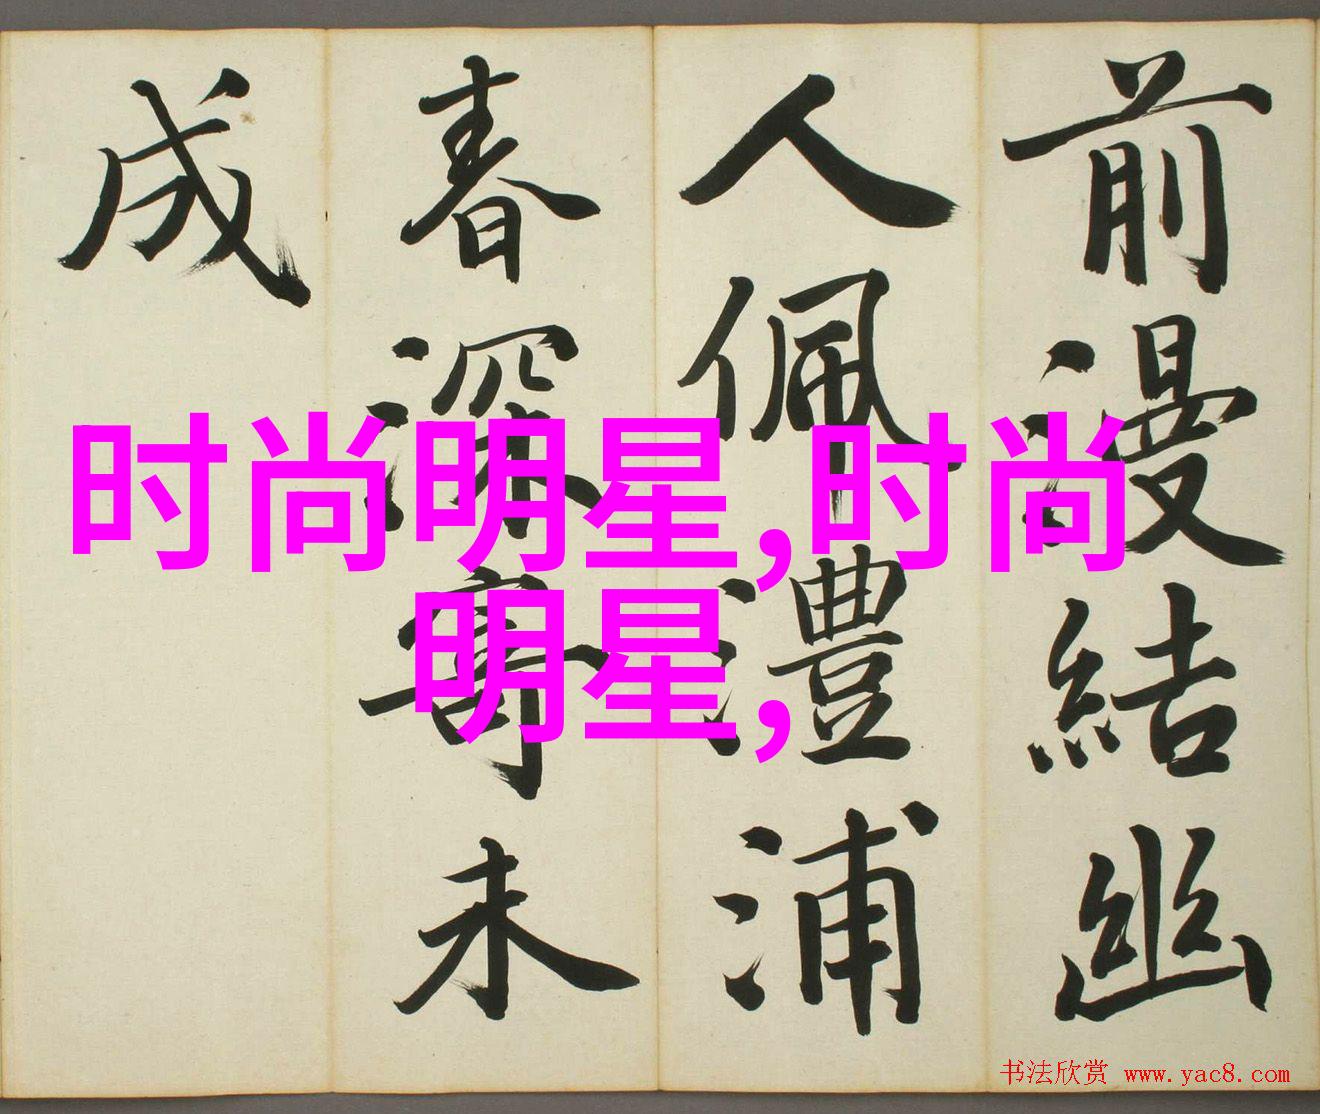 前漫結幽
人佩澧浦
春深奪未
成
时尚明星,时尚
明星,
书法欣赏 www.yac8.com